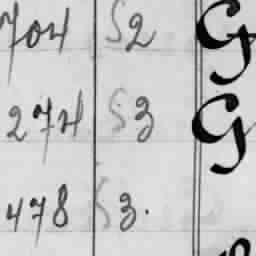 704 S2 G
274 S3 G
478 S3.